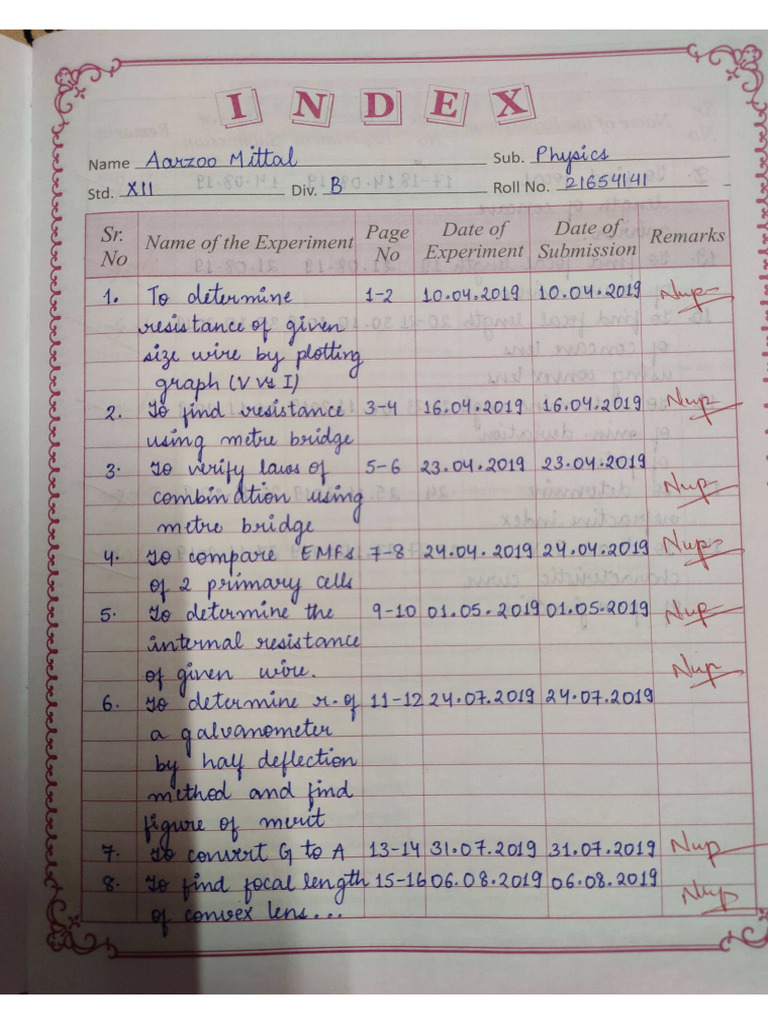 INDEX
Name Aarzoo Mittal Sub. Physics
Std. XII Div. B Roll No. 21654141
Sr. No Name of the Experiment Page No Date of Experiment Date of Submission Remarks
1. To determine 1-2 10.04.2019 10.04.2019
resistance of given
size wire by plotting
graph (V vs I)
2. To find resistance 3-4 16.04.2019 16.04.2019
using metre bridge
3. To verify laws of 5-6 23.04.2019 23.04.2019
combination using
metre bridge
4. To compare EMFs 7-8 24.04.2019 24.04.2019
of 2 primary cells
5. To determine the 9-10 01.05.2019 01.05.2019
internal resistance
of given wire.
6. To determine r. of 11-12 24.07.2019 24.07.2019
a galvanometer
by half deflection
method and find
figure of merit
7. To convert G to A 13-14 31.07.2019 31.07.2019
8. To find focal length 15-16 06.08.2019 06.08.2019
of convex lens...